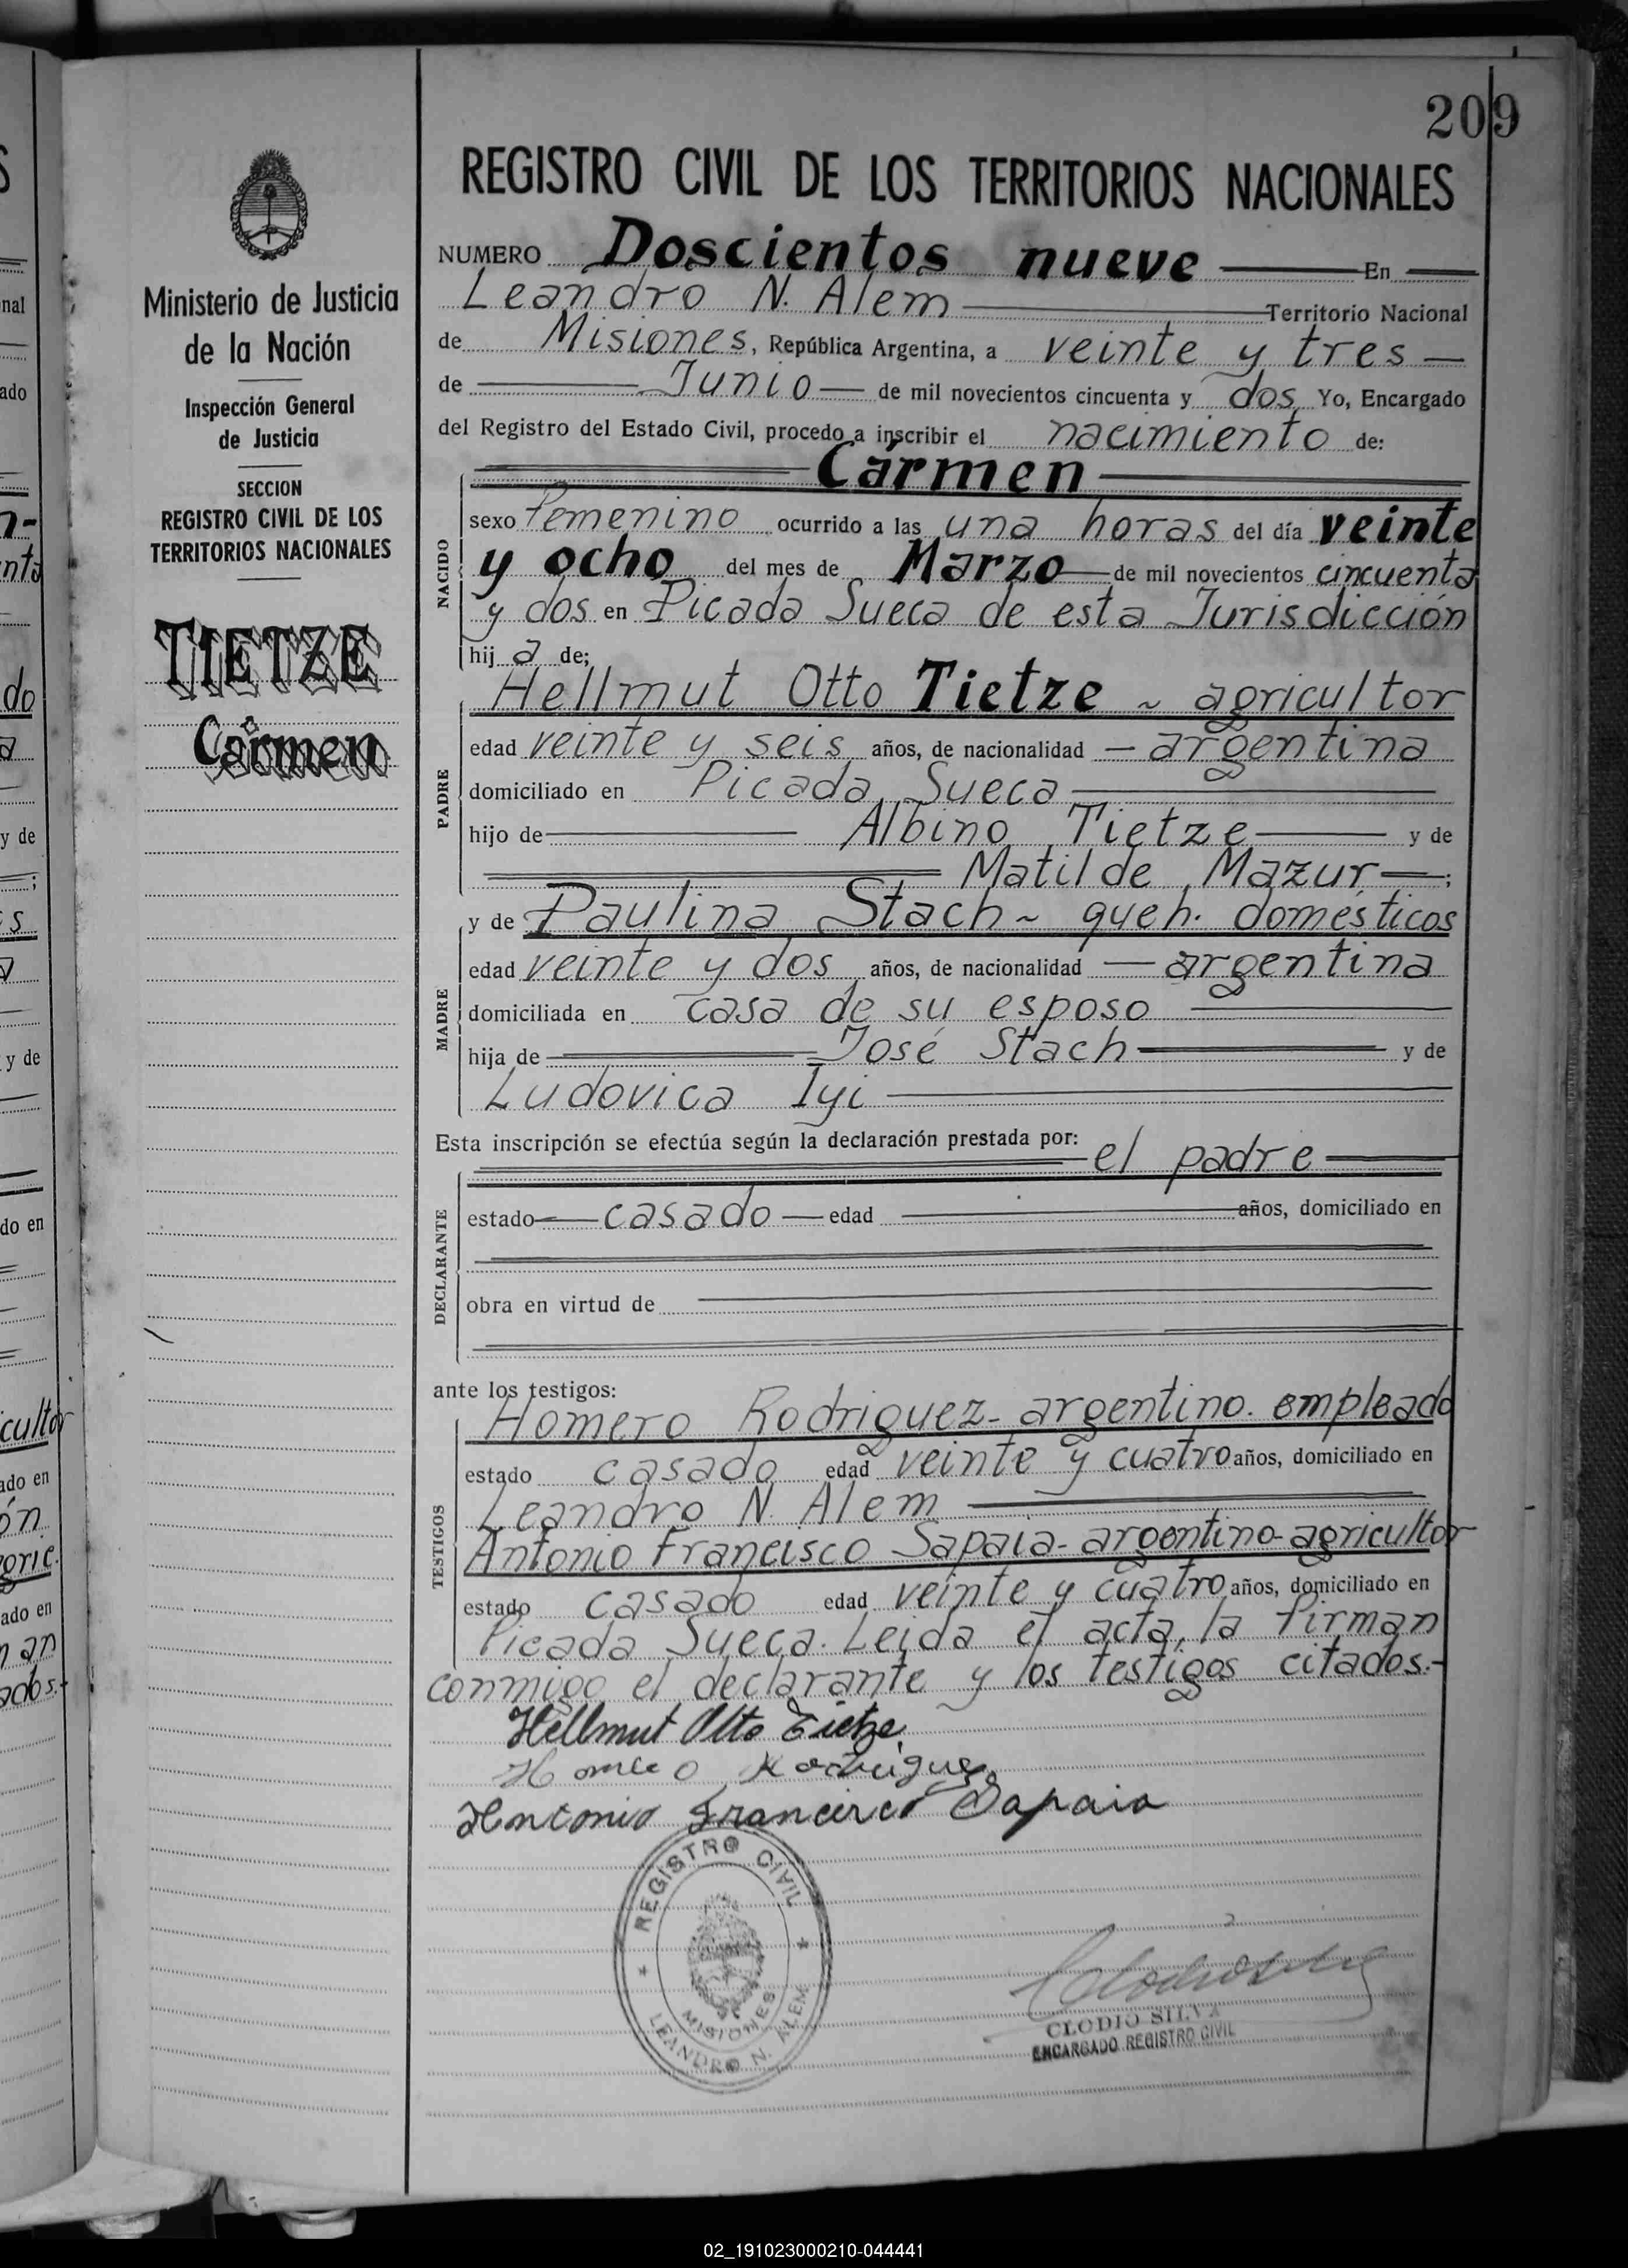 209
REGISTRO CIVIL DE LOS TERRITORIOS NACIONALES
Ministerio de Justicia
de la Nación
Inspección General
de Justicia
SECCION
REGISTRO CIVIL DE LOS
TERRITORIOS NACIONALES
TIETZE
Carmen
NUMERO Doscientos nueve En
Leandro N. Alem Territorio Nacional
de Misiones, República Argentina, a veinte y tres
de Junio de mil novecientos cincuenta y dos Yo, Encargado
del Registro del Estado Civil, procedo a inscribir el nacimiento de:
Carmen
NACIDO
sexo femenino ocurrido a las una horas del día veinte
y ocho del mes de Marzo de mil novecientos cincuenta
y dos en Picada Sueca de esta Jurisdicción
hij a de;
Hellmut Otto Tietze ~ agricultor
PADRE
edad veinte y seis años, de nacionalidad argentina
domiciliado en Picada Sueca
hijo de Albino Tietze y de
Matilde Mazur;
y de Paulina Stach ~ queh. domésticos
MADRE
edad veinte y dos años, de nacionalidad argentina
domiciliada en casa de su esposo
hija de José Stach y de
Ludovica Iyi
Esta inscripción se efectúa según la declaración prestada por:
el padre
DECLARANTE
estado casado edad años, domiciliado en
obra en virtud de
ante los testigos:
Homero Rodriguez - argentino. empleado
TESTIGOS
estado casado edad veinte y cuatro años, domiciliado en
Leandro N. Alem
Antonio Francisco Sapaia - argentino - agricultor
estado casado edad veinte y cuatro años, domiciliado en
Picada Sueca. Leida el acta, la firman
conmigo el declarante y los testigos citados.-
Hellmut Otto Tietze
Homero Rodriguez
Antonio Francisco Sapaia
REGISTRO CIVIL
MISIONES
LEANDRO N. ALEM
CLODIO SILVA
ENCARGADO REGISTRO CIVIL
02_191023000210-044441